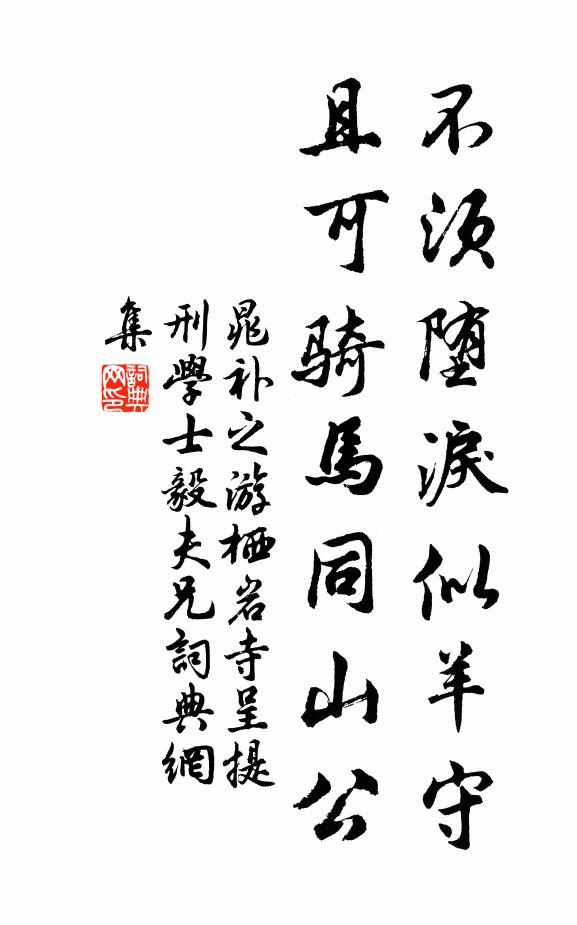 不須堕淚似羊守
且可騎馬同山公
晁补之游栖岩寺呈提
刑學士毅夫兄詞典網
集
詞典網印